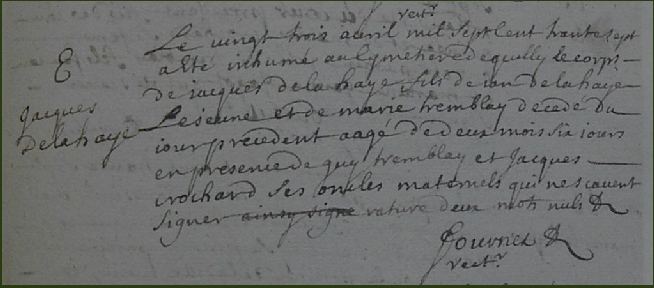 E
Jacques
Delahaye
rect.r
Le vingt trois avril mil sept Cent trante sept
a Eté inhumé au Cymetiere decquilly le corps
de jacques de la haye fils de ian de la haye
Le jeune et de marie tremblay decedé du
iour precedent aagé de deux mois six iours
en presence de guy tremblay et Jacques
crochard ses oncles maternels qui ne scavent
signer ainsy signé rature deux mots nuls &
rect.r